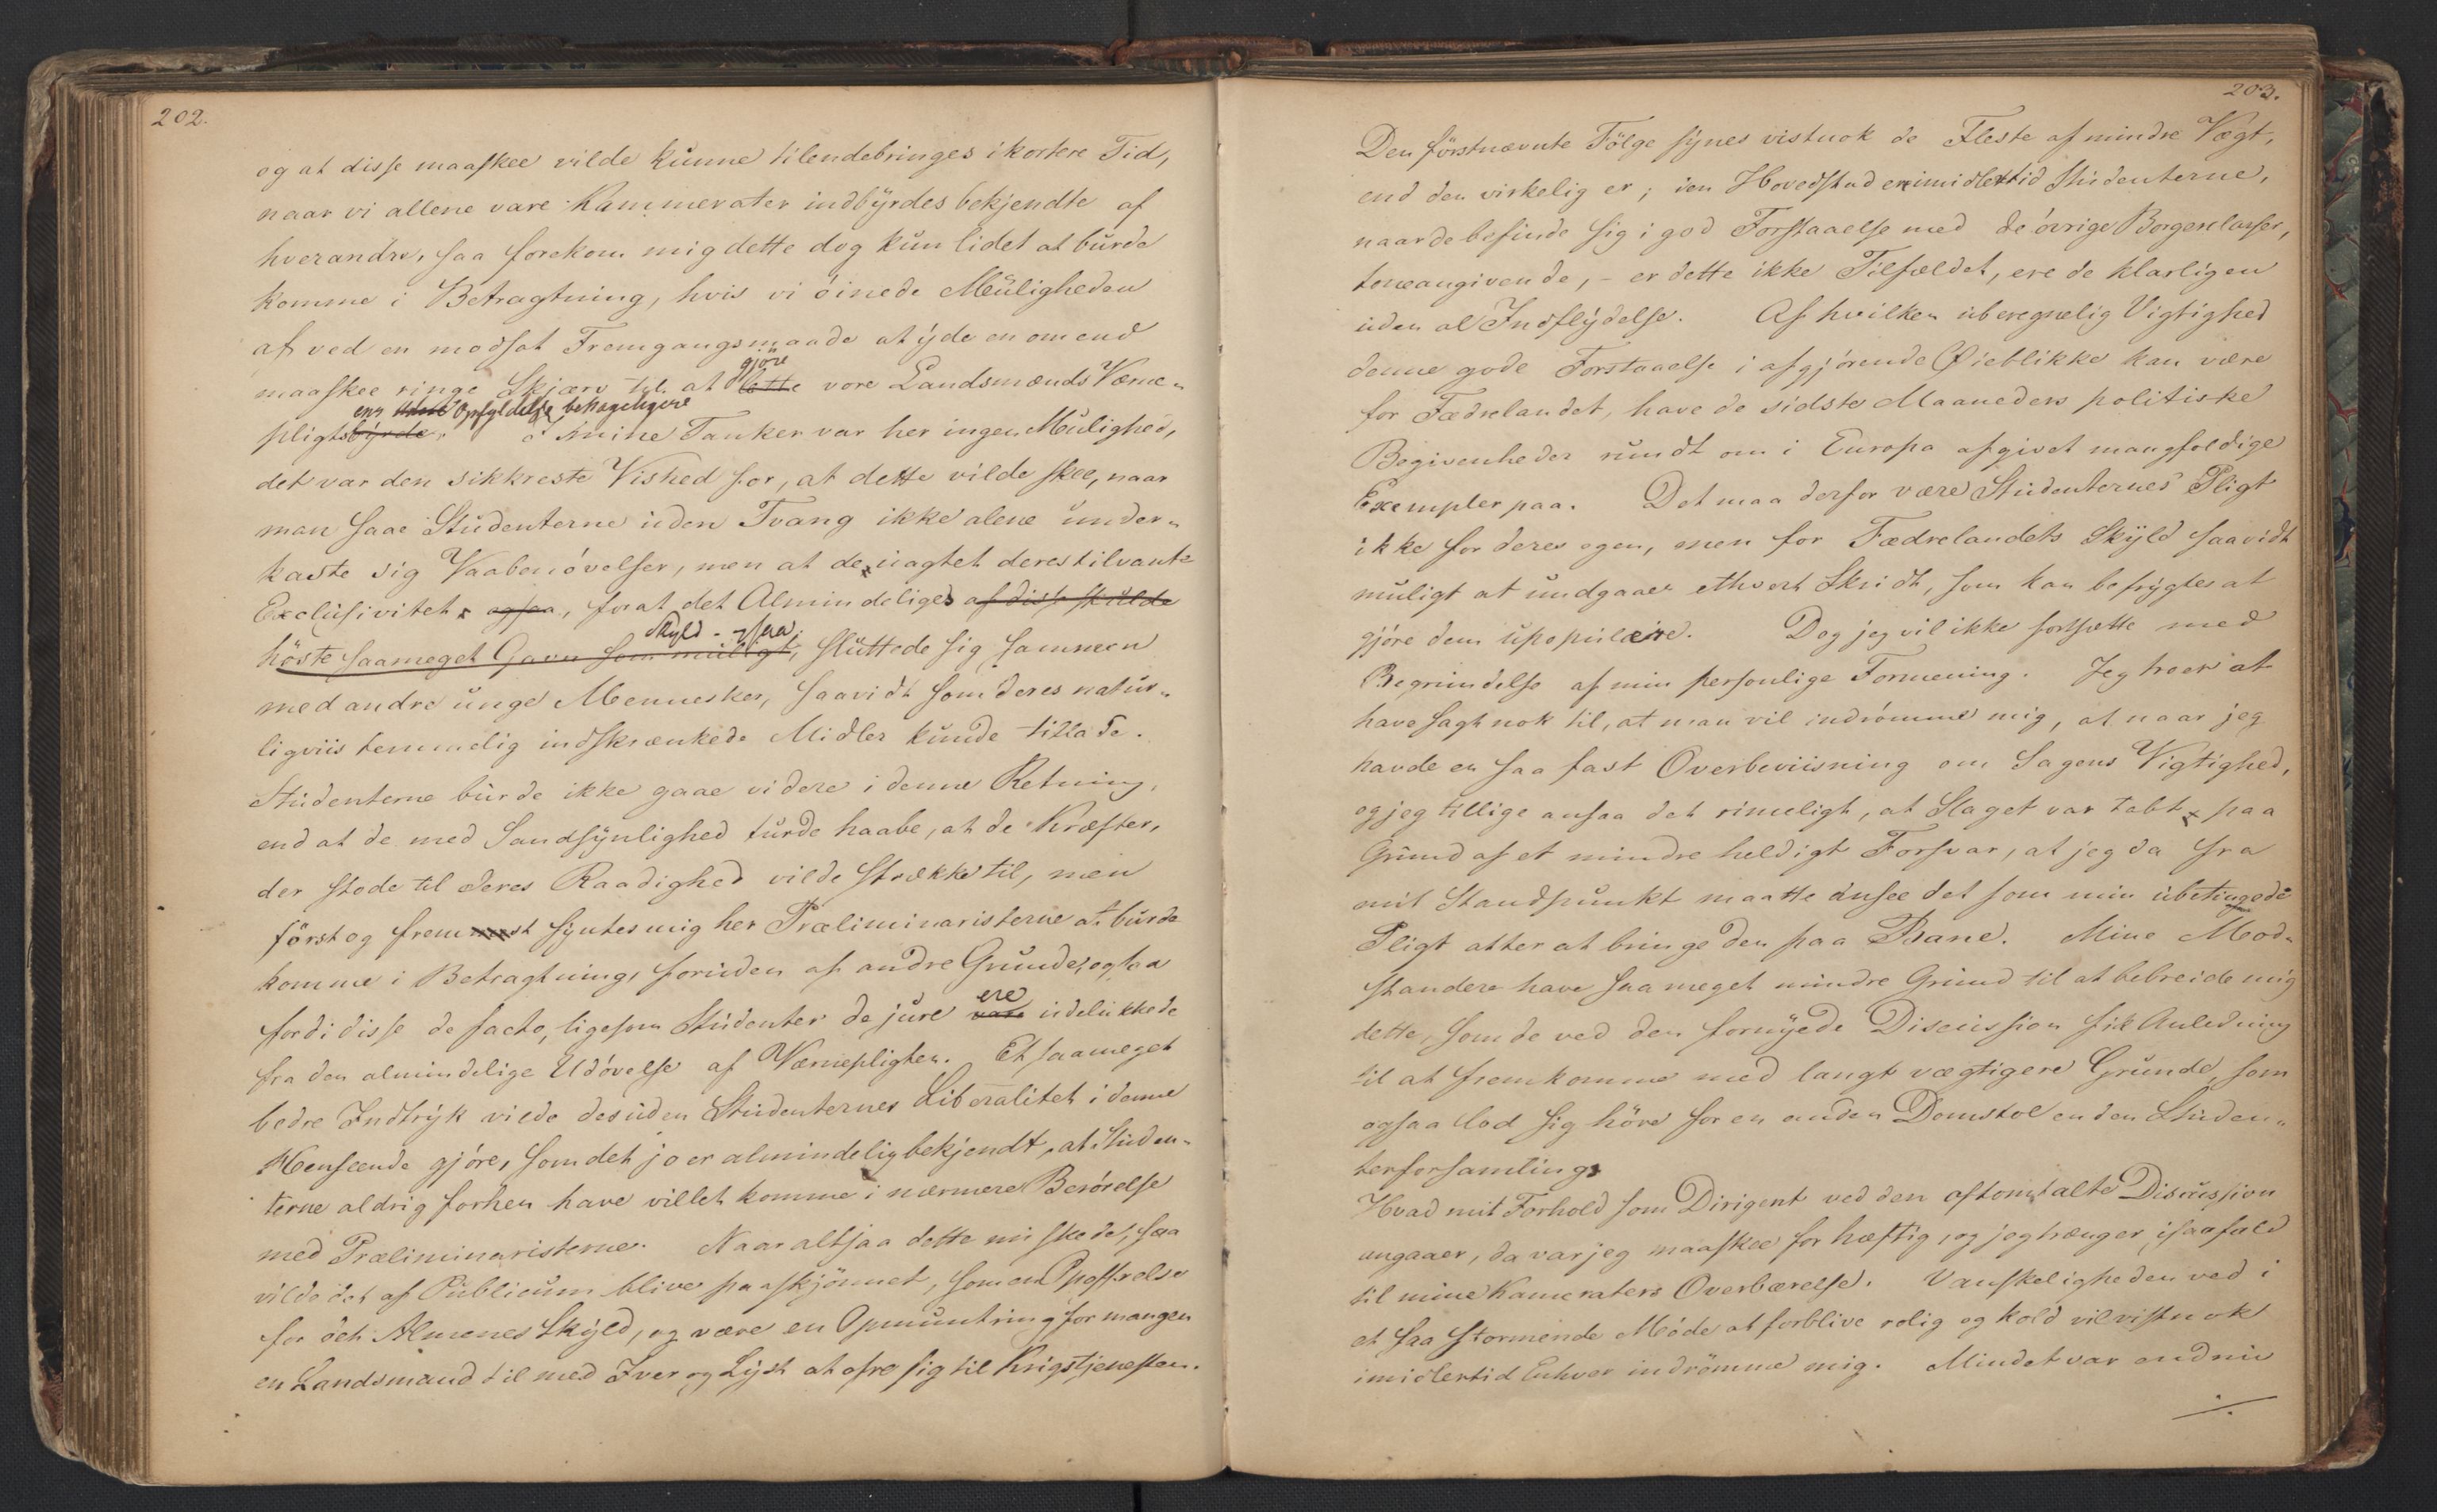 202.
og at disse maaskee vilde kunne tilendebringes i kortere Tid,
naar vi allene vare Kammerater indbyrdes bekjendte af
hverandre, saa forekom mig dette dog kun lidet at burde
komme i Betragtning, hvis vi öinede Muligheden
af ved en modsat Fremgangsmaade at yde en om end
gjöre
maaskee ringe Skjærv til at lette vore Landsmænds Værne-
ens Opfyldelse behageligere
pligtsbyrde. I mine Tanker var her ingen Mulighed,
det var den sikkreste Vished for, at dette vilde skee, naar
man saae Studenterne uden Tvang ikke alene under-
kaste sig Vaabenövelser, men at de uagtet deres tilvante
Exclusivitet ogsaa, forat det Almindeliges af disse skulde
Skyld - ogsaa
höste saameget Gavn som muligt, sluttede sig sammen
med andre unge Mennesker, saavidt som deres natur-
ligviis temmelig indskrænkede Midler kunde tillade.
Studenterne burde ikke gaae videre i denne Retning,
end at de med Sandsynlighed turde haabe, at de Kræfter,
der stode til deres Raadighed vilde strække til, men
först og fremmest syntes mig her Præliminaristerne at burde
komme i Betragtning, foruden af andre Grunde, ogsaa
ere
fordi disse de facto, ligesom Studenter de jure vare udelukkede
fra den almindelige Udövelse af Værnepligten. Et saameget
bedre Indtryk vilde desuden Studenternes Liberalitet i denne
Henseende gjöre, som det jo er almindelig bekjendt, at Studen-
terne aldrig forhen have villet komme i nærmere Berörelse
med Præliminaristerne. Naar altsaa dette nu skede, saa
vilde det af Publicum blive paaskjönnet, som en Opoffrelse
for det Almenes Skyld, og være en Opmuntring for mangen
en Landsmand til med Iver og Lyst at ofre sig til Krigstjenesten.
203.
Den förstnævnte Fölge synes vistnok de Fleste af mindre Vægt,
end den virkelig er; i en Hovedstad ere imidlertid Studenterne,
naar de befinde sig i god Forstaaelse med de övrige Borgerclasser,
toneangivende, - er dette ikke Tilfældet, ere de klarligen
uden al Indflydelse. Af hvilken uberegnelig Vigtighed
denne gode Forstaaelse i afgjörende Øieblikke kan være
for Fædrelandet, have de sidste Maaneders politiske
Begivenheder rundt om i Europa afgivet mangfoldige
Exempler paa. Det maa derfor være Studenternes Pligt
ikke for deres egen, men for Fædrelandets Skyld saavidt
muligt at undgaae ethvert Skridt, som kan befrygtes at
gjöre dem upopulære. Dog jeg vil ikke fortsætte med
Begrundelse af min personlige Formening. Jeg troer at
have sagt nok til, at man vil indrömme mig, at naar jeg
havde en saa fast Overbeviisning om Sagens Vigtighed,
og jeg tillige ansaa det rimeligt, at Slaget var tabt paa
Grund af et mindre heldigt Forsvar, at jeg da fra
mit Standpunkt maatte ansee det som min ubetingede
Pligt atter at bringe den paa Bane. Mine Mod-
standere have saa meget mindre Grund til at bebreide mig
dette, som de ved den fornyede Discussion fik Anledning
til at fremkomme med langt vægtigere Grunde, som
ogsaa lod sig höre for en anden Domstol end en Studen-
terforsamlings
Hvad mit Forhold som Dirigent ved den oftomtalte Discussion
angaaer, da var jeg maaskee for hæftig, og jeg trænger isaafald
til mine Kameraters Overbærelse. Vanskeligheden ved i
et saa stormende Möde at forblive rolig og kold vil vistnok
imidlertid Enhver indrömme mig. Mindet var endnu